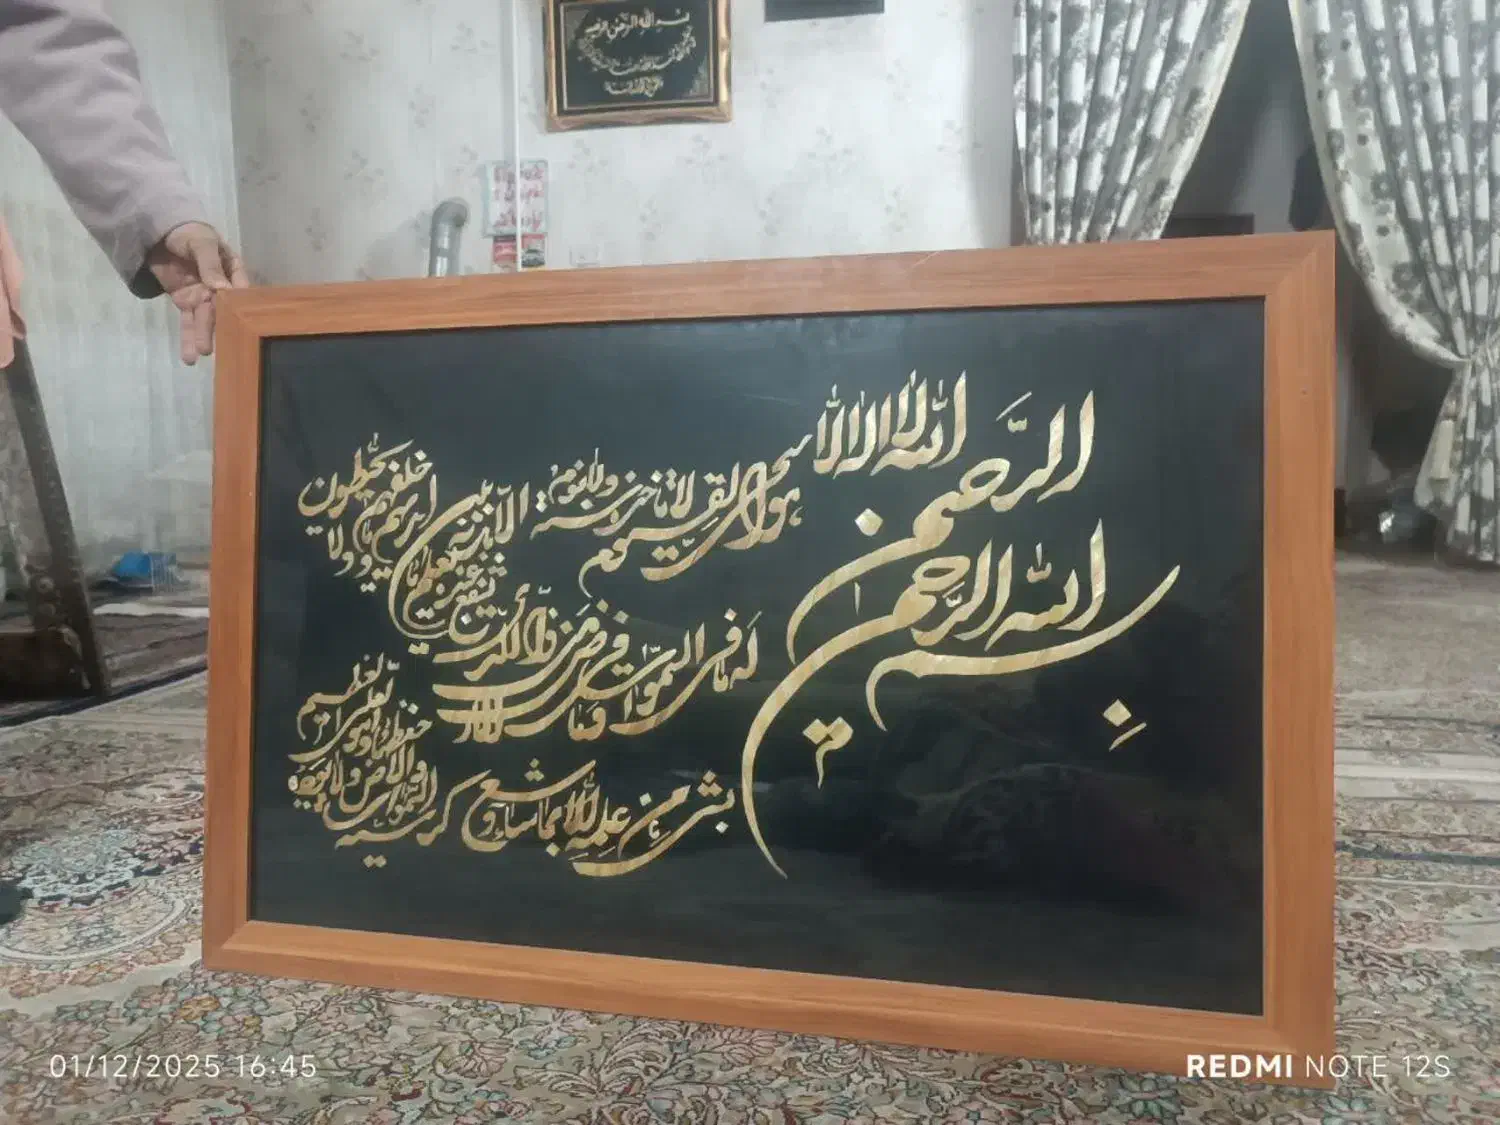 بسم الله الرحمن الرحيم
بسم الله الرحمن
الرحيم
الله لا اله الا
هو الحي القيوم لا تاخذه سنة ولا نوم
له ما في السموات وما في الارض من ذا الذي يشفع عنده الا باذنه يعلم ما بين ايديهم وما خلفهم ولا يحيطون
بشيء من علمه الا بما شاء وسع كرسيه السموات والارض ولا يؤده حفظهما وهو العلي العظيم
01/12/2025 16:45
REDMI NOTE 12S